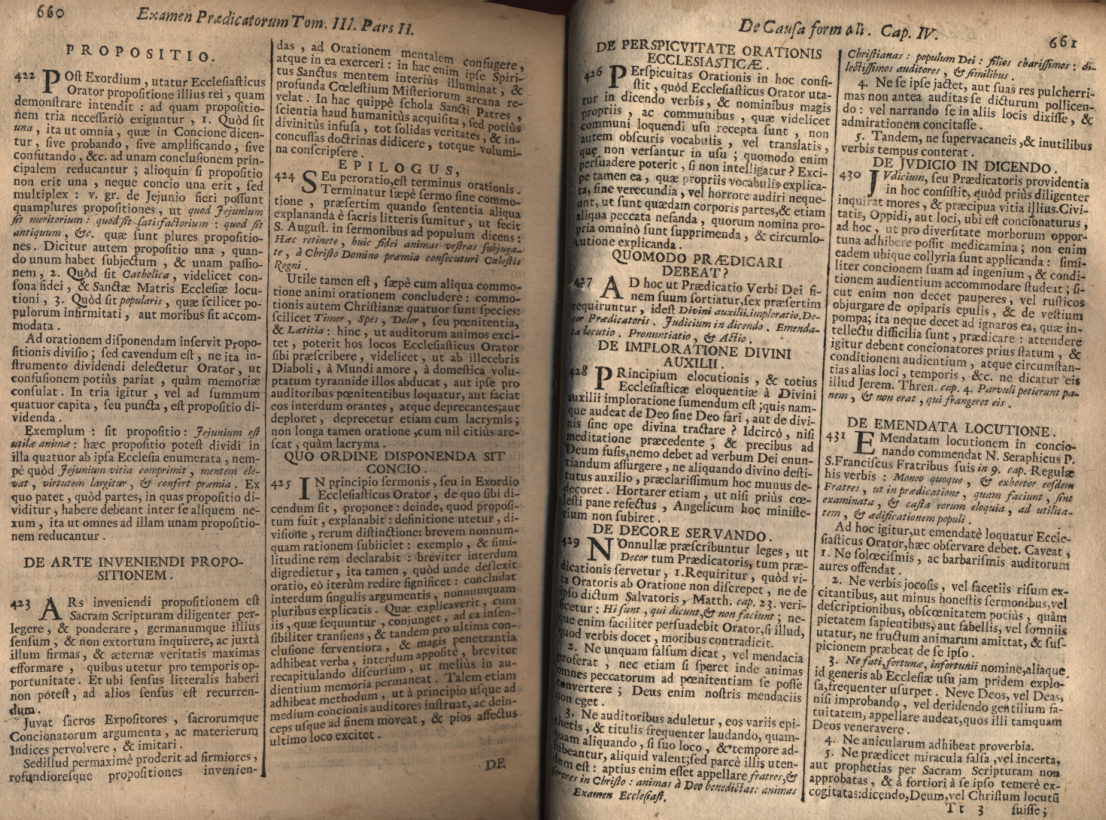 660
Examen Prædicatorum Tom. III. Pars II.
PROPOSITIO.
422 POst Exordium, utatur Ecclesiasticus
Orator propositione illius rei, quam
demonstrare intendit: ad quam propositio-
nem tria necessariò exiguntur, 1. Quòd sit
una, ita ut omnia, quæ in Concione dicen-
tur, sive probando, sive amplificando, sive
confutando, &c. ad unam conclusionem prin-
cipalem reducantur; alioquin si propositio
non erit una, neque concio una erit, sed
multiplex: v. gr. de Jejunio fieri possunt
quamplures propositiones, ut quod Jejunium
sit meritorium: quod sit satisfactorium: quod sit
antiquum, &c. quæ sunt plures propositio-
nes. Dicitur autem propositio una, quan-
do unum habet subjectum, & unam passio-
nem, 2. Quòd sit Catholica, videlicet con-
sona fidei, & Sanctæ Matris Ecclesiæ locu-
tioni, 3. Quòd sit popularis, quæ scilicet po-
pulorum infirmitati, aut moribus sit accom-
modata.
Ad orationem disponendam inservit Propo-
sitionis divisio; sed cavendum est, ne ita in-
strumento dividendi delectetur Orator, ut
confusionem potiùs pariat, quàm memoriæ
consulat. In tria igitur, vel ad summum
quatuor capita, seu puncta, est propositio di-
videnda.
Exemplum: sit propositio: Jejunium est
utile animæ: hæc propositio potest dividi in
illa quatuor ab ipsa Ecclesia enumerata, nem-
pè quòd Jejunium vitia comprimit, mentem ele-
vat, virtutem largitur, & confert præmia. Ex
quo patet, quòd partes, in quas propositio di-
viditur, habere debeant inter se aliquem ne-
xum, ita ut omnes ad illam unam propositio-
nem reducantur.
DE ARTE INVENIENDI PROPO-
SITIONEM.
423 ARs inveniendi propositionem est
Sacram Scripturam diligenter per-
legere, & ponderare, germanumque illius
sensum, & non extortum inquirere, ac juxtà
illum firmas, & æternæ veritatis maximas
efformare, quibus utetur pro temporis op-
portunitate. Et ubi sensus litteralis haberi
non potest, ad alios sensus est recurren-
dum.
Juvat sacros Expositores, sacrorumque
Concionatorum argumenta, ac materierum
Indices pervolvere, & imitari.
Sed illud permaximè proderit ad firmiores,
rofundioresque propositiones invenien-
das, ad Orationem mentalem confugere,
atque in ea exerceri: in hac enim ipse Spiri-
tus Sanctus mentem interiùs illuminat, &
profunda Cœlestium Misteriorum arcana re-
velat. In hac quippè schola Sancti Patres,
scientia haud humanitùs acquisita, sed potiùs
divinitùs infusa, tot solidas veritates, & in-
concussas doctrinas didicere, totque volumi-
na conscripsere.
EPILOGUS,
424 SEu peroratio, est terminus orationis.
Terminatur sæpè sermo sine commo-
tione, præsertim quando sententia aliqua
explananda è sacris litteris sumitur, ut fecit
S. August. in sermonibus ad populum dicens:
Hæc retinete, huic fidei animas vestras subjuga-
te, à Christo Domino præmia consecuturi Cœlestis
Regni.
Utile tamen est, sæpè cum aliqua commo-
tione animi orationem concludere: commo-
tionis autem Christianæ quatuor sunt species:
scilicet Timor, Spes, Dolor, seu pœnitentia,
& Lætitia: hinc, ut auditorum animos exci-
tet, poterit hos locos Ecclesiasticus Orator
sibi præscribere, videlicet, ut ab illecebris
Diaboli, à Mundi amore, à domestica volu-
ptatum tyrannide illos abducat, aut ipse pro
auditoribus pœnitentibus loquatur, aut faciat
eos interdum orantes, atque deprecantes; aut
deploret, deprecetur etiam cum lacrymis;
non longa tamen oratione, cum nil citiùs are-
scat, quàm lacryma.
QUO ORDINE DISPONENDA SIT
CONCIO.
425 IN principio sermonis, seu in Exordio
Ecclesiasticus Orator, de quo sibi di-
cendum sit, proponet: deinde, quod proposi-
tum fuit, explanabit: definitione utetur, di-
visione, rerum distinctione: brevem nonnun-
quam rationem subjiciet: exemplo, & simi-
litudine rem declarabit: breviter interdum
digredietur, ita tamen, quòd unde deflexit
oratio, eò iterùm redire significet: concludat
interdum singulis argumentis, nonnunquam
pluribus explicatis. Quæ explicaverit, cum
iis, quæ sequuntur, conjunget, ad ea insen-
sibiliter transiens, & tandem pro ultima con-
clusione serventiora, & magis penetrantia
adhibeat verba, interdum appositè, breviter
recapitulando discursum, ut meliùs in au-
dientium memoria permaneat. Talem etiam
adhibeat methodum, ut à principio usque ad
medium concionis auditores instruat, ac dein-
ceps usque ad finem moveat, & pios affectus
ultimo loco excitet.
DE
De Causa formali. Cap. IV.
661
DE PERSPICVITATE ORATIONIS
ECCLESIASTICÆ.
426 PErspicuitas Orationis in hoc consi-
stit, quòd Ecclesiasticus Orator uta-
tur in dicendo verbis, & nominibus magis
propriis, ac communibus, quæ videlicet
communi loquendi usu recepta sunt, non
autem obscuris vocabulis, vel translatis,
quæ non versantur in usu; quomodo enim
persuadere poterit, si non intelligatur? Exci-
pe tamen ea, quæ propriis vocabulis explica-
ta, sine verecundia, vel horrore audiri neque-
unt, ut sunt quædam corporis partes, & etiam
aliqua peccata nefanda, quorum nomina pro-
pria omninò sunt supprimenda, & circumlo-
cutione explicanda.
QUOMODO PRÆDICARI
DEBEAT?
427 AD hoc ut Prædicatio Verbi Dei fi-
nem suum sortiatur, sex præsertim
requiruntur, idest Divini auxilii imploratio. De-
cor Prædicatoris. Judicium in dicendo. Emenda-
ta locutio. Pronuntiatio, & Actio.
DE IMPLORATIONE DIVINI
AUXILII.
428 PRincipium elocutionis, & totius
Ecclesiasticæ eloquentiæ à Divini
auxilii imploratione sumendum est; quis nam-
que audeat de Deo sine Deo fari, aut de divi-
nis sine ope divina tractare? Idcircò, nisi
meditatione præcedente, & precibus ad
Deum fusis, nemo debet ad verbum Dei enun-
tiandum assurgere, ne aliquando divino desti-
tutus auxilio, præclarissimum hoc munus de-
decoret. Hortarer etiam, ut nisi priùs cœ-
lesti pane refectus, Angelicum hoc ministe-
rium non subiret.
DE DECORE SERVANDO.
429 NOnnullæ præscribuntur leges, ut
Decor tum Prædicatoris, tum præ-
dicationis servetur, 1. Requiritur, quòd vi-
ta Oratoris ab Oratione non discrepet, ne de
ipso dictum Salvatoris, Matth. cap. 23. veri-
ficetur: Hi sunt, qui dicunt, & non faciunt; ne-
que enim faciliter persuadebit Orator, si illud,
quod verbis docet, moribus contradicit.
2. Ne unquam falsum dicat, vel mendacia
proferat, nec etiam si speret inde animas
omnes peccatorum ad pœnitentiam se posse
convertere; Deus enim nostris mendaciis
non eget.
3. Ne auditoribus aduletur, eos variis epi-
thetis, & titulis frequenter laudando, quam-
quam aliquando, si suo loco, & tempore ad-
hibeantur, aliquid valent; sed parcè illis uten-
dum est: aptius enim esset appellare fratres, &
sorores in Christo: animas à Deo benedictas: animas
Examen Ecclesiast.
Christianas: populum Dei: filios charissimos: di-
lectissimos auditores, & similibus.
4. Ne se ipse jactet, aut suas res pulcherri-
mas non antea auditas se dicturum pollicen-
do: vel narrando se in aliis locis dixisse, &
admirationem concitasse.
5. Tandem, ne supervacaneis, & inutilibus
verbis tempus conterat.
DE JVDICIO IN DICENDO.
430 JVdicium, seu Prædicatoris providentia
in hoc consistit, quòd priùs diligenter
inquirat mores, & præcipua vitia illius. Civi-
tatis, Oppidi, aut loci, ubi est concionaturus,
ad hoc, ut pro diversitate morborum oppor-
tuna adhibere possit medicamina; non enim
eadem ubique collyria sunt applicanda: simi-
liter concionem suam ad ingenium, & condi-
tionem audientium accommodare studeat; si-
cut enim non decet pauperes, vel rusticos
objurgare de opiparis epulis, & de vestium
pompa; ita neque decet ad ignaros ea, quæ in-
tellectu difficilia sunt, prædicare: attendere
igitur debent concionatores priùs statum, &
conditionem audientium, atque circumstan-
tias alias loci, temporis, &c. ne dicatur eis
illud Jerem. Thren. cap. 4. Parvuli petierunt pa-
nem, & non erat, qui frangeret eis.
DE EMENDATA LOCUTIONE.
431 EMendatam locutionem in concio-
nando commendat N. Seraphicus P.
S. Franciscus Fratribus suis in 9. cap. Regulæ
his verbis: Moneo quoque, & exhortor eosdem
Fratres, ut in prædicatione, quam faciunt, sint
examinata, & casta eorum eloquia, ad utilita-
tem, & ædificationem populi.
Ad hoc igitur, ut emendatè loquatur Eccle-
siasticus Orator, hæc observare debet. Caveat,
1. Ne solœcismis, ac barbarismis auditorum
aures offendat.
2. Ne verbis jocosis, vel facetiis risum ex-
citantibus, aut minus honestis sermonibus, vel
descriptionibus, obscœnitatem potiùs, quàm
pietatem sapientibus, aut fabellis, vel somniis
utatur, ne fructum animarum amittat, & sus-
picionem præbeat de se ipso.
3. Ne fati, fortunæ, infortunii nomine, aliaque
id generis ab Ecclesiæ usu jam pridem explo-
sa, frequenter usurpet. Neve Deos, vel Deas,
nisi improbando, vel deridendo gentilium fa-
tuitatem, appellare audeat, quos illi tamquam
Deos veneravere.
4. Ne anicularum adhibeat proverbia.
5. Ne prædicet miracula falsa, vel incerta,
aut prophetias per Sacram Scripturam non
approbatas, & à fortiori à se ipso temerè ex-
cogitatas: dicendo, Deum, vel Christum locutū
Tt 3 fuisse;